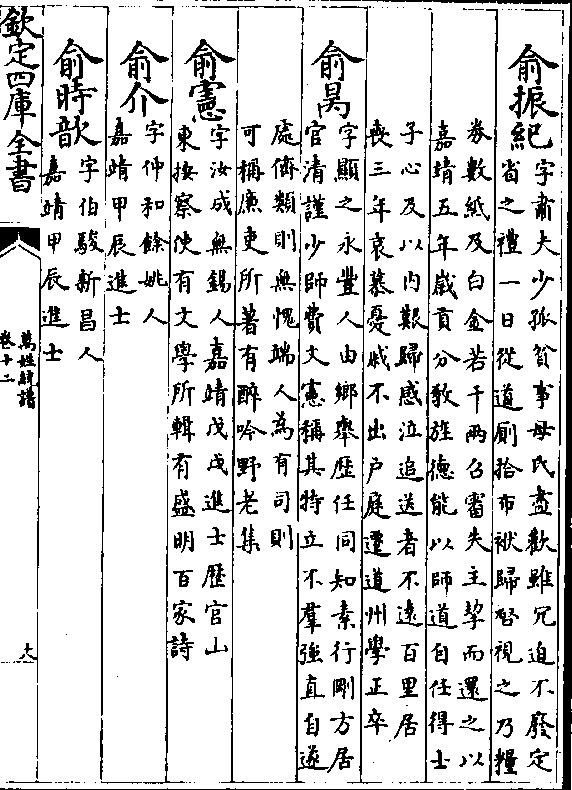 俞振紀
字肅夫少孤貧事母氏盡歡雖冗迫不廢定
省之禮一日從道厠拾布袱歸啓視之乃糧
劵數紙及白金若干兩召畱失主挈而還之以
嘉靖五年嵗貢分教旌德能以師道自任得士
子心及以内艱歸感泣追送者不遠百里居
喪三年哀慕憂戚不出户庭遷道州學正卒
俞昺
字顯之永豐人由鄉舉歷任同知素行剛方居
官清謹少師費文憲稱其特立不羣强直自遂
處儕類則無愧端人為有司則
可稱廉吏所著有醉吟野老集
俞憲
字汝成無錫人嘉靖戊戌進士歷官山
東按察使有文學所輯有盛明百家詩
俞介
字仲和餘姚人
嘉靖甲辰進士
俞時歆
字伯駿新昌人
嘉靖甲辰進士
欽定四庫全書
萬姓統譜
卷十二